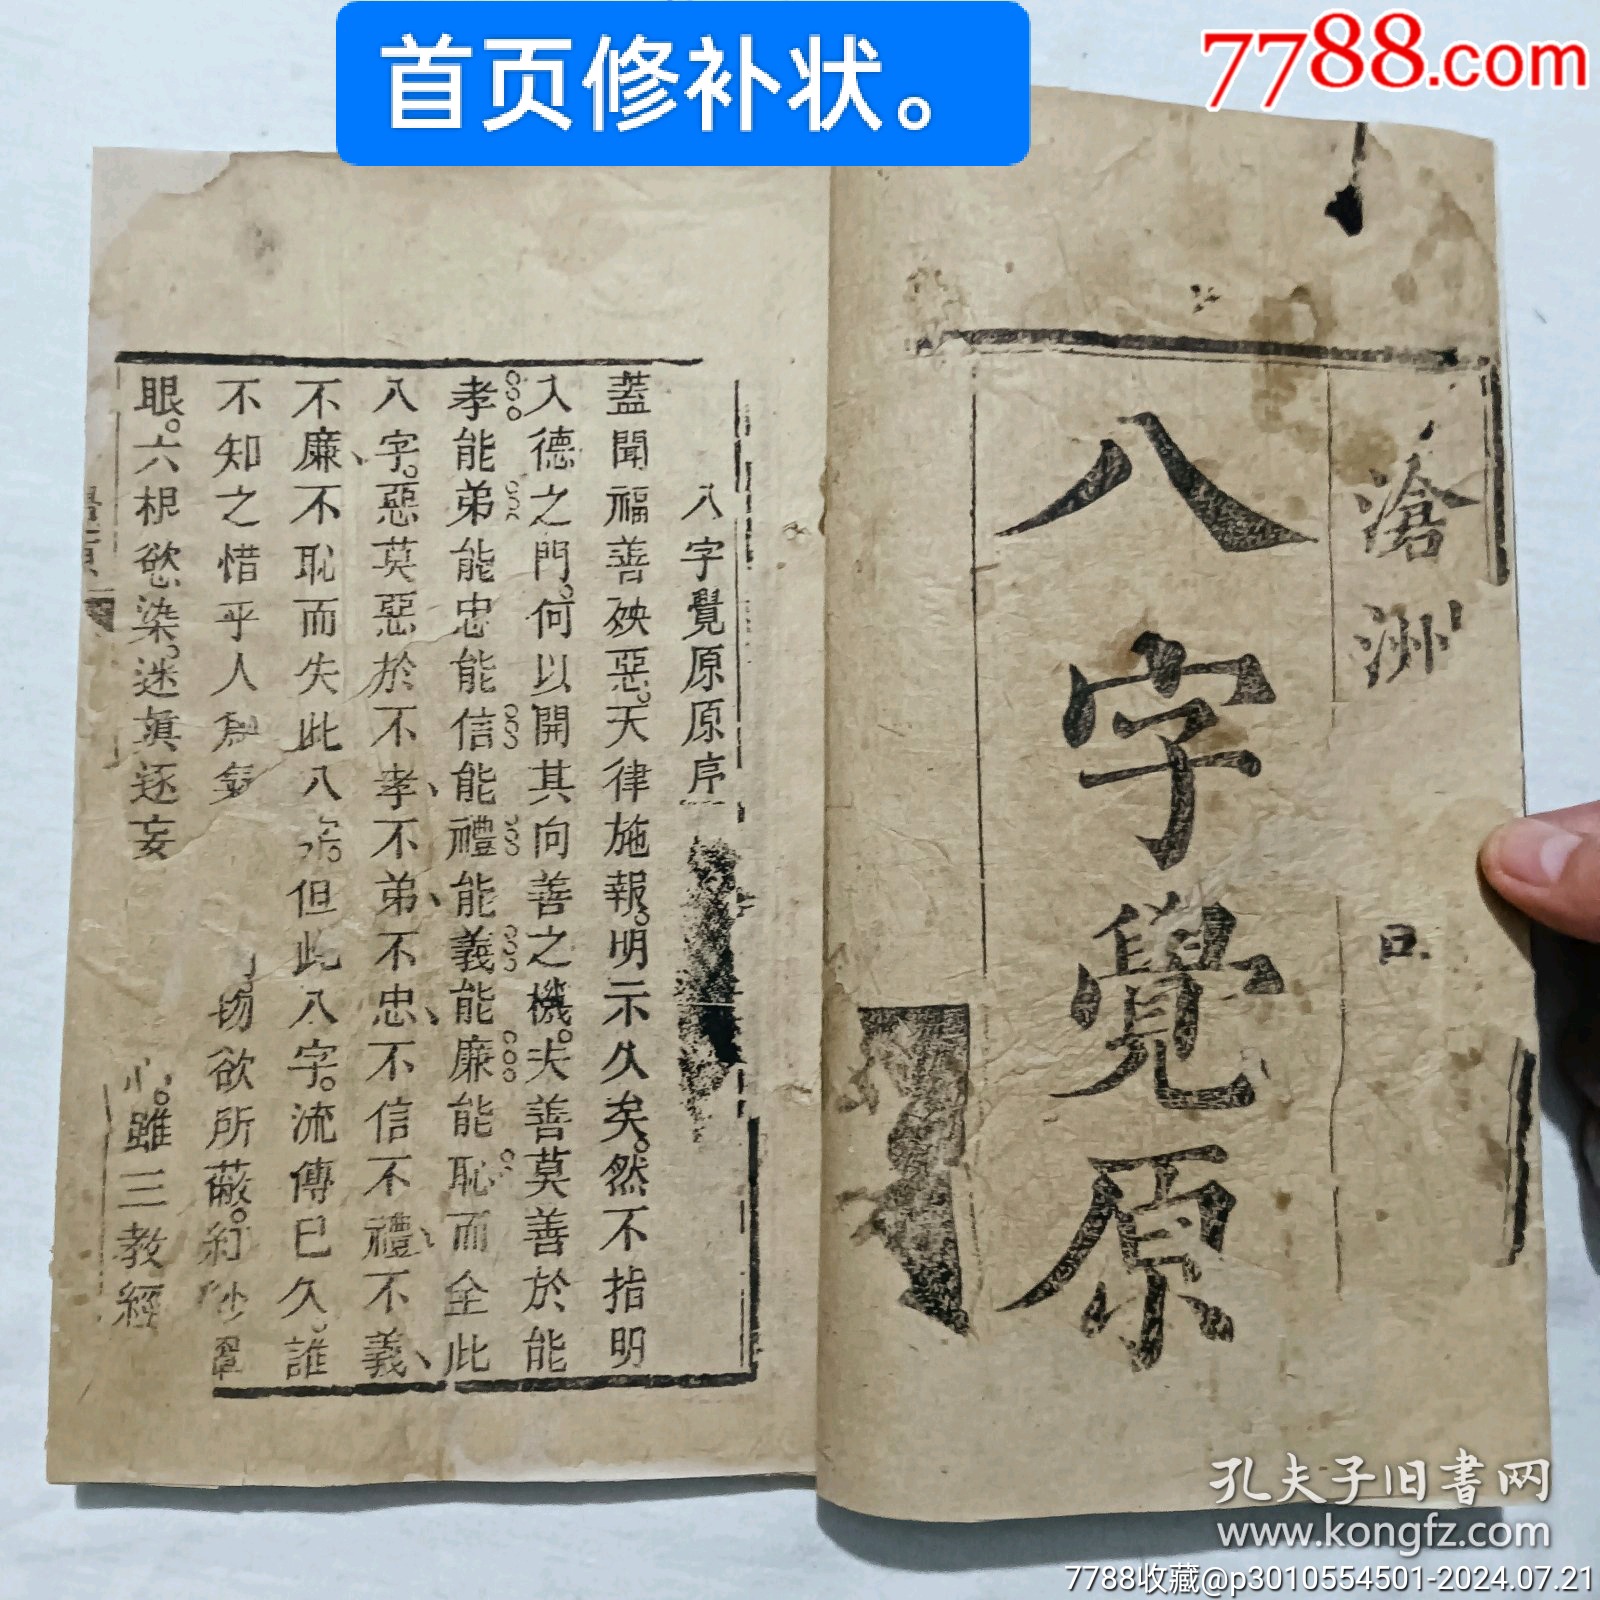 首页修补状。
7788.com
滄洲
口
八字覺原
八字覺原原序
蓋聞福善殃惡。天律施報。明示久矣。然不指明
入德之門。何以開其向善之機。夫善莫善於能
孝能弟能忠能信能禮能義能廉能恥而全此
八字。惡莫惡於不孝、不弟、不忠、不信不禮、不義、
不廉、不恥而失此八字。但此八字。流傳已久。誰
不知之惜乎人為氣 物欲所蔽。紅
眼。六根慾染。迷眞逐妄 心。雖三教經
孔夫子旧書网
www.kongfz.com
7788收藏@p3010554501-2024.07.21